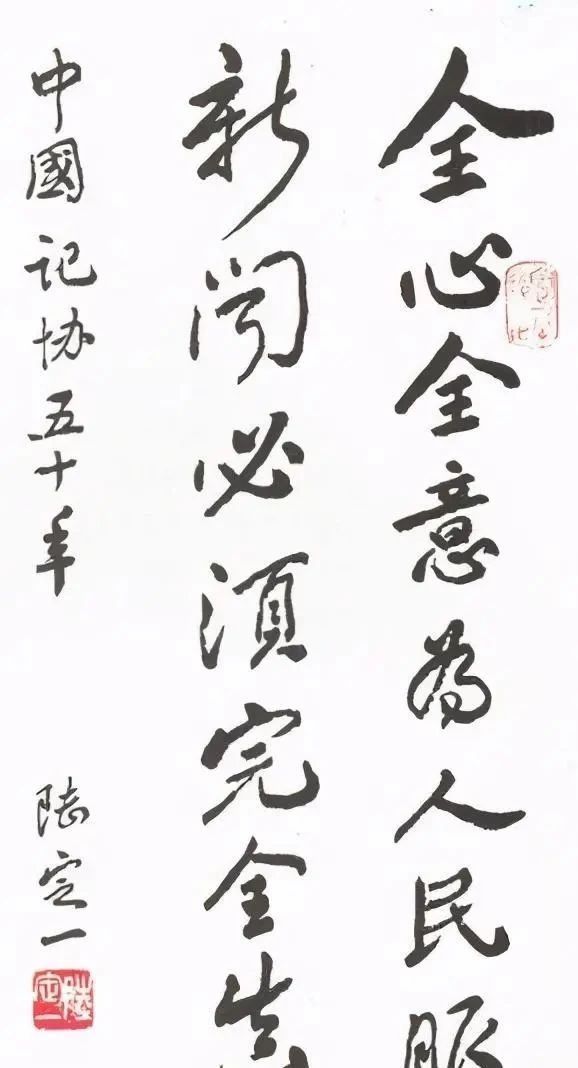 全心全意为人民服
新闻必須完全
中國记协五十年
陆定一
陸定一